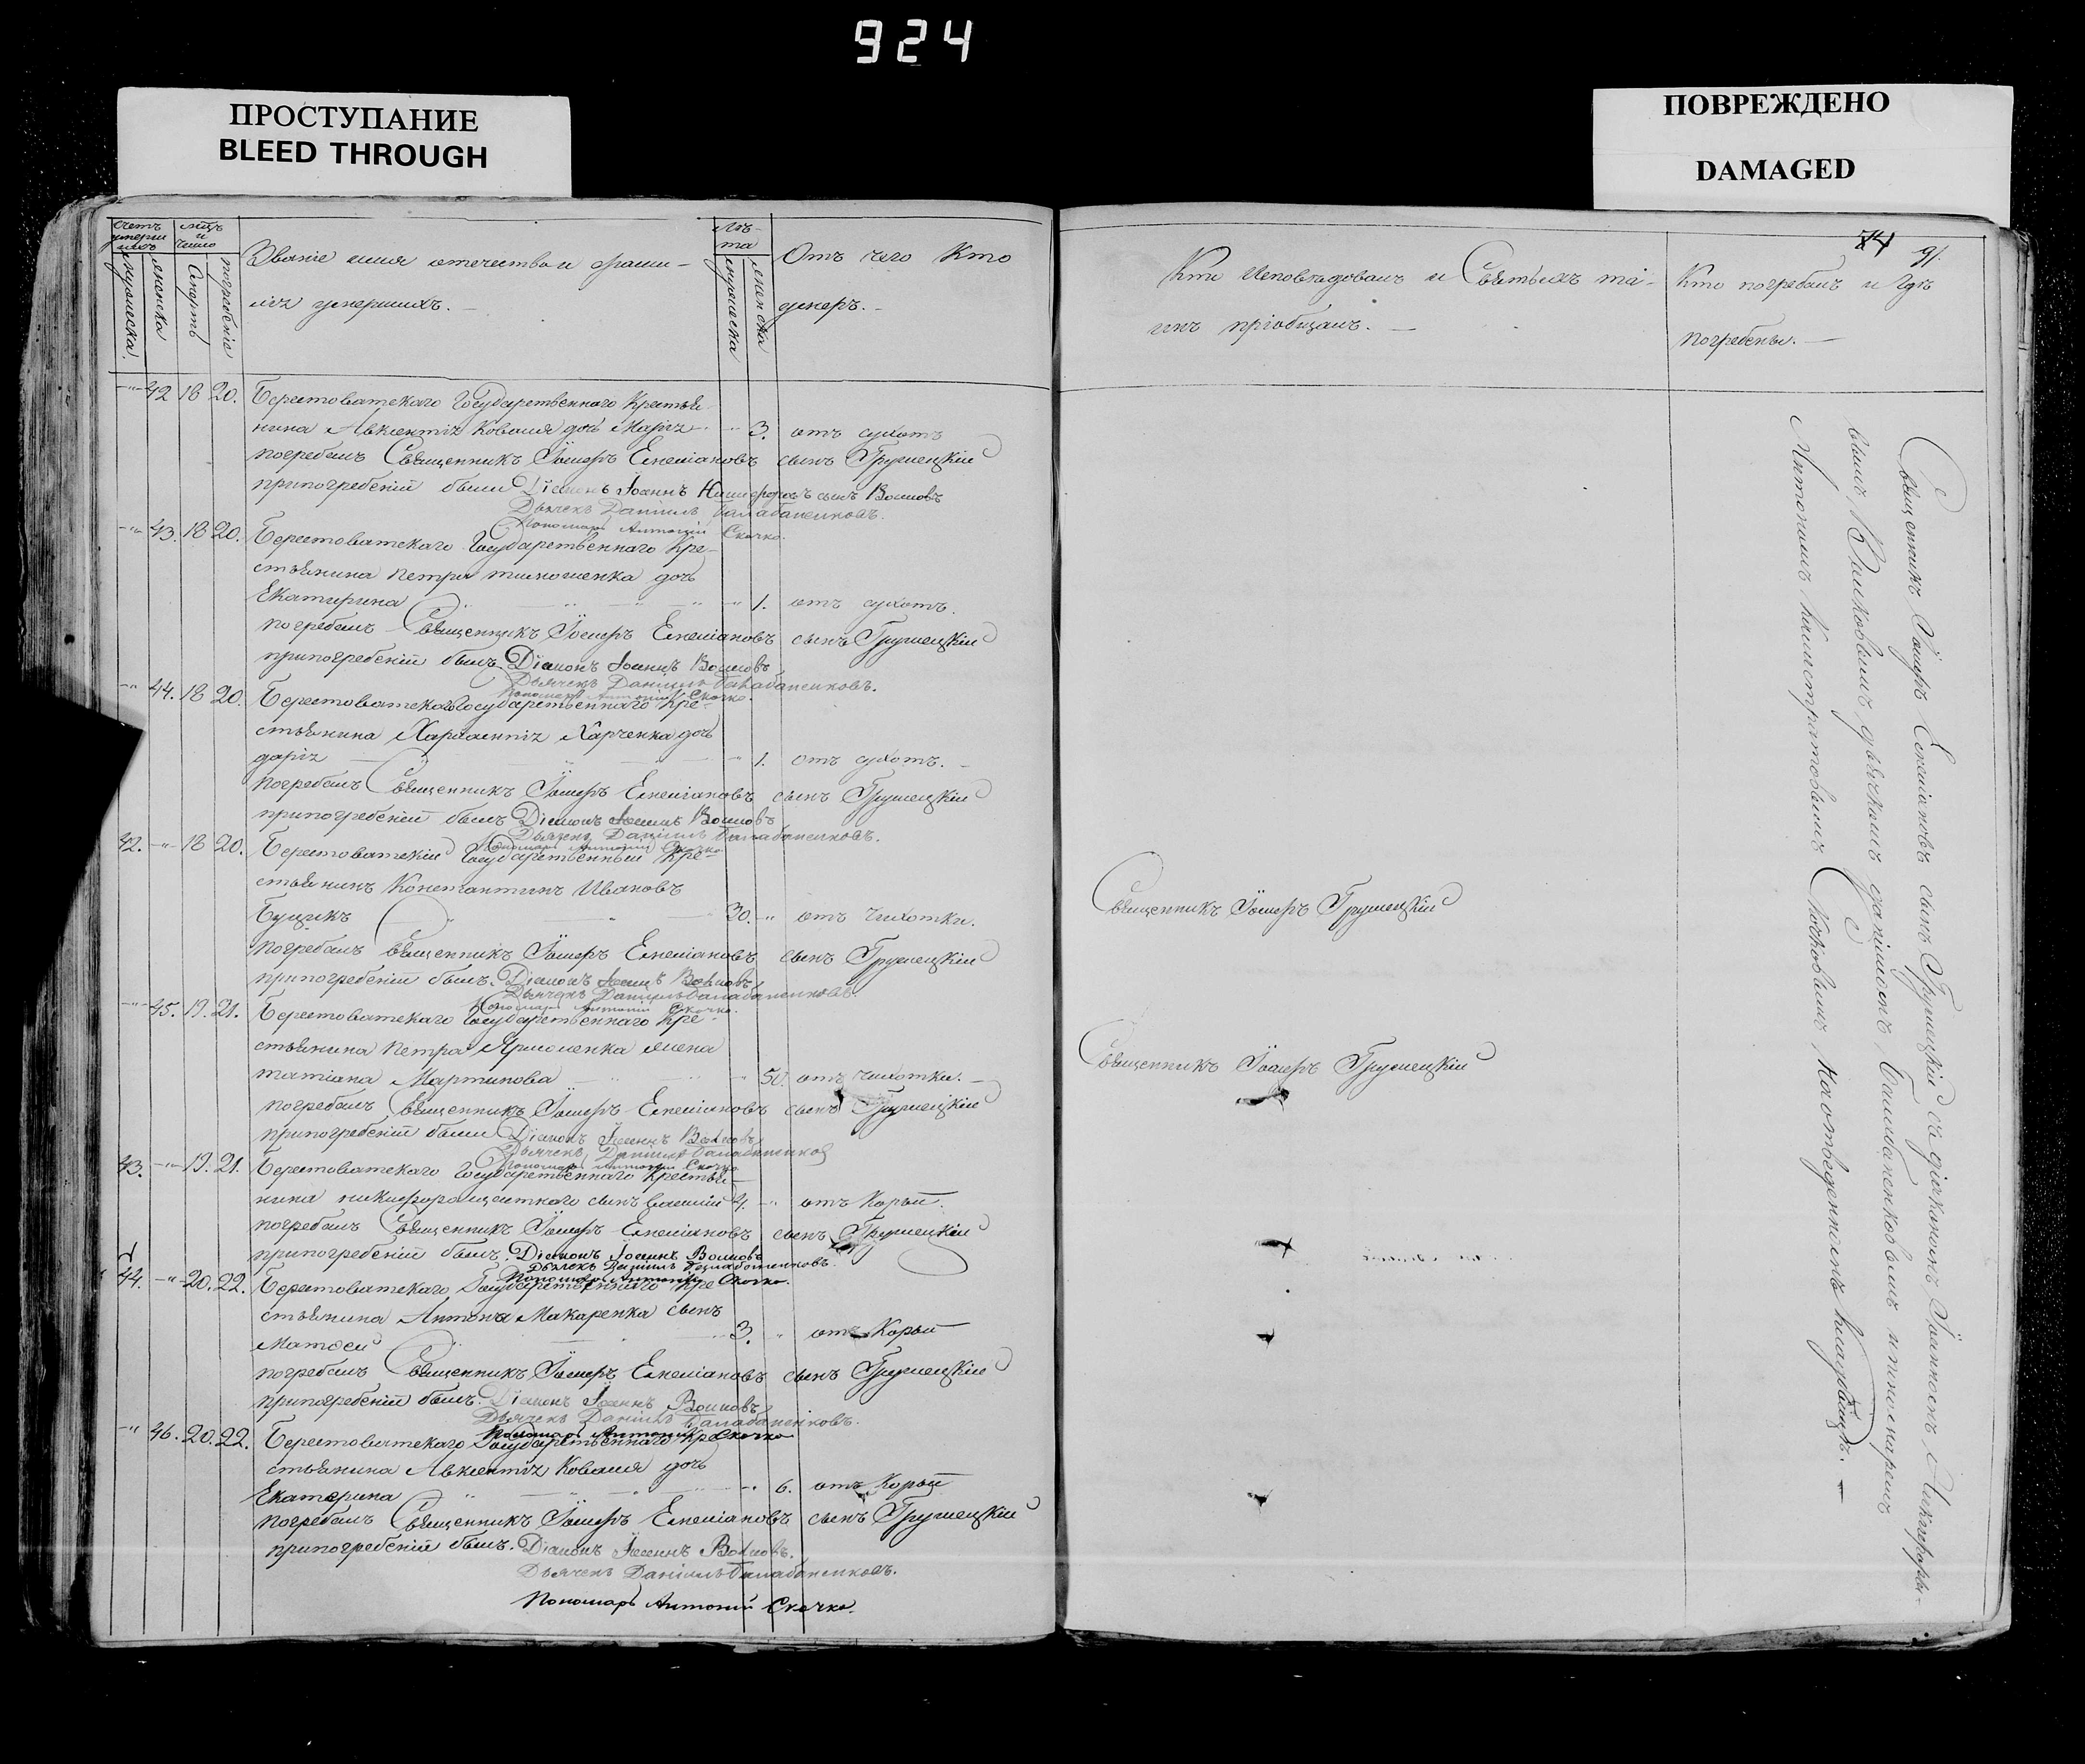 924
ПРОСТУПАНИЕ
BLEED THROUGH
ПОВРЕЖДЕНО
DAMAGED
Счетъ умершихъ
мужеска
женска
мцъ и число
Смерть
погребеніе
Званіе имя отечество и фами-
лія умершихъ.
Лѣ-
та
мужеска
женска
Отъ чего Кто
умеръ.
42 18 20. Берестоватскаго Государственнаго Крестья-
нина Авксентія Коваля дочь Марія 3. отъ сухотъ
погребалъ Священникъ Іосифъ Емеліановъ сынъ Грушецкій
при погребеніи были Діаконъ Іоаннъ Никифоровъ сынъ Волковъ
Дьячекъ Даніилъ Балабаненковъ.
Пономарь Антоній Скочко.
43. 18 20. Берестоватскаго Государственнаго Кре-
стьянина Петра дочь
Екатерина 1. отъ сухотъ.
погребалъ Священникъ Іосифъ Емеліановъ сынъ Грушецкій
при погребеніи былъ Діаконъ Іоаннъ Волковъ
Дьячекъ Даніилъ Балабаненковъ.
Пономарь Антоній Скочко.
44. 18 20. Берестоватскаго Государственнаго Кре-
стьянина Харлампія Харченка дочь
дарія 1. отъ сухотъ.
погребалъ Священникъ Іосифъ Емеліановъ сынъ Грушецкій
при погребеніи былъ Діаконъ Іоаннъ Волковъ
Дьячекъ Даніилъ Балабаненковъ.
Пономарь Антоній Скочко
42. 18 20. Берестоватскій Государственный Кре-
стьянинъ Константинъ Ивановъ
Буцикъ 30. отъ чихотки.
погребалъ Священникъ Іосифъ Емеліановъ сынъ Грушецкій
при погребеніи былъ. Діаконъ Іоаннъ Волковъ
Дьячекъ Даніилъ Балабаненковъ.
Пономарь Антоній Скочко.
45. 19. 21. Берестоватскаго Государственнаго Кре-
стьянина Петра Ярмоленка жена
татіана Мартинова 50. отъ чихотки.
погребалъ Священникъ Іосифъ Емеліановъ сынъ Грушецкій
при погребеніи были Діаконъ Іоаннъ Волковъ
Дьячекъ Даніилъ Балабаненков
Пономарь Антоній Скочко
43. 19. 21. Берестоватскаго Государственнаго Крестья-
нина никифора сынъ 4. отъ Корый.
погребалъ Священникъ Іосифъ Емеліановъ сынъ Грушецкій
при погребеніи былъ. Діаконъ Іоаннъ Волковъ
Дьячекъ Даніилъ Балабаненковъ.
Пономарь Антоній Скочко.
44. 20. 22. Берестоватскаго Государственнаго Кре
стьянина Антона Макаренка сынъ
Матѳей 3. отъ Корый
погребалъ Священникъ Іосифъ Емеліановъ сынъ Грушецкій
при погребеніи былъ. Діаконъ Іоаннъ Волковъ
Дьячекъ Даніилъ Балабаненковъ.
Пономарь Антоній Скочко
46. 20. 22. Берестоватскаго Государственнаго Кре
стьянина Авксентія Коваля дочь
Екатерина 6. отъ Корый
погребалъ Священникъ Іосифъ Емеліановъ сынъ Грушецкій
при погребеніи былъ. Діаконъ Іоаннъ Волковъ.
Дьячекъ Даніилъ Балабаненковъ.
Пономарь Антоній Скочко.
74
91
Кто Исповѣдовалъ и Святыхъ та-
инъ пріобщалъ.
Кто погребалъ и гдѣ
погребены.
Священникъ Іосифъ Грушецкій
Священникъ Іосифъ Грушецкій
Священникъ Іосифъ Емеліановъ сынъ Грушецкій съ діакономъ Іоанномъ Никифоро-
вымъ Волковымъ, дьячкомъ даніиломъ Балабаненковымъ и пономаремъ
Антономъ Скочковымъ на отведенномъ кладбищѣ.